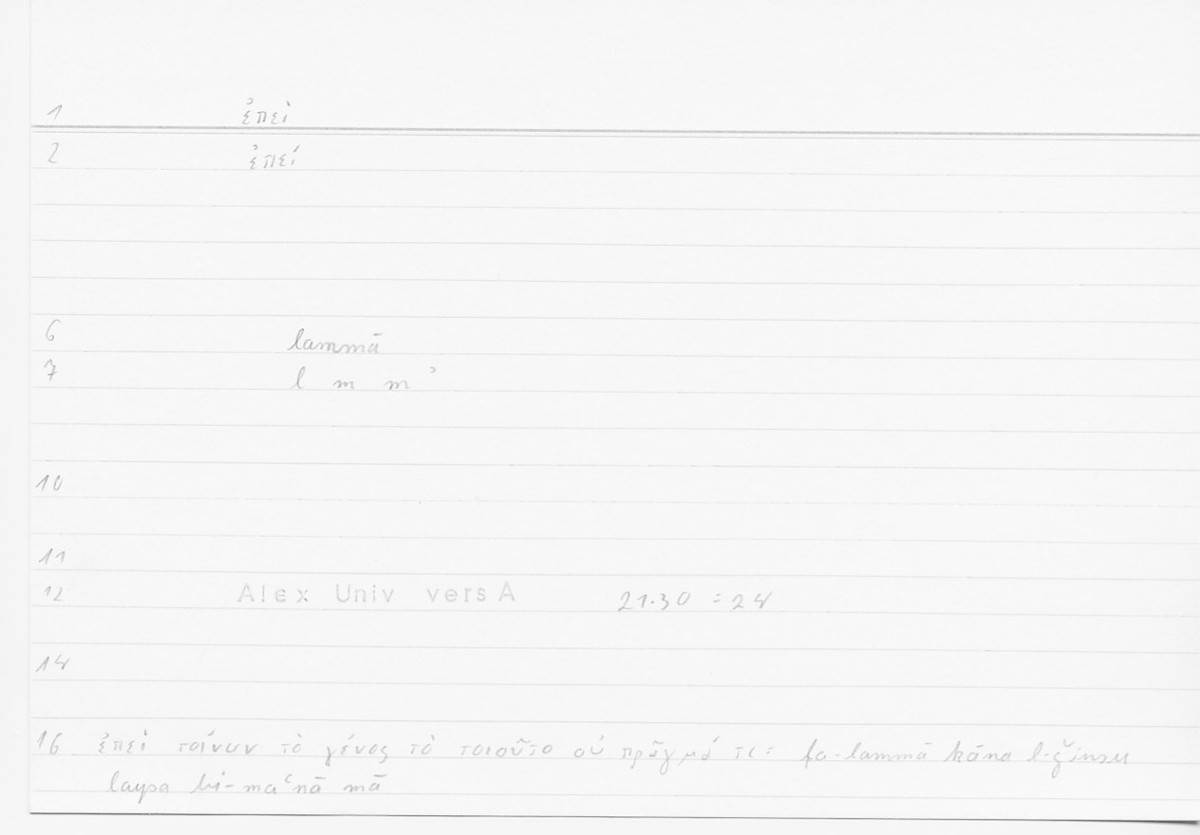 1 ἐπεὶ
2 ἐπεί
6 lammā
7 l m m ʾ
10
11
12 Alex Univ vers A 21.30 = 24
14
16 ἐπεὶ τοίνυν τὸ γένος τὸ τοιοῦτο οὐ πρᾶγμά τι = fa-lammā kāna l-ǧinsu
laysa bi-maʿnā mā